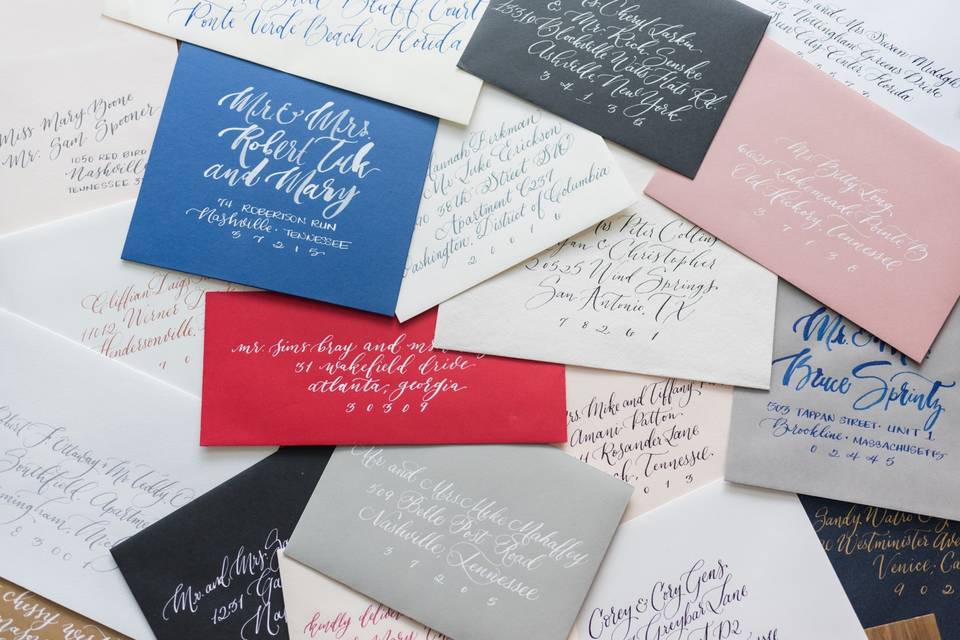 Bluff Court
Ponte Verde Beach, Florida
Ms. Cheryl Laskin
& Mr. Rich Senske
Ashville, New York
and Ms. Susan
Nottingham Greens Drive
Sun City Center, Florida
Miss Mary Boone
Mr. Sam Spooner
1050 RED BIRD
Nashville
TENNESSEE 3
Mr. & Mrs.
Robert Tuck
and Mary
74 ROBERTSON RUN
Nashville · TENNESSEE
3 7 2 1 5
Hannah Firkman
Mr. Luke Erickson
38th Street
Apartment
Washington, District of Columbia
2 0 0 1
Ms. Betty Long
Lakemeade Pointe
Old Hickory, Tennessee
3 7 1 3 8
Peter Collins
& Christopher
20525 Wind Springs
San Antonio, TX
7 8 2 6 1
11012 Werner
Hendersonville,
mr. sims bray and ms
31 wakefield drive
atlanta, georgia
3 0 3 0 9
Mr. &
Bruce Sprintz
303 TAPPAN STREET · UNIT 1
Brookline · MASSACHUSETTS
0 2 4 4 5
Mrs. Mike and Tiffany
Amani Patton
Rosander Lane
Tennessee
0 1 3
Mr. and Mrs. Mike Mahaffey
509 Belle Post Road
Nashville, Tennessee
3 7 2 0 5
& Mr. Teddy
Southfield Apartment
8 3 0 0
Mr. and Mrs.
1231
Corey & Cory Gens,
Greybar Lane
Sandy
Westminster Ave
Venice, Ca
9 0 2
kindly deliver